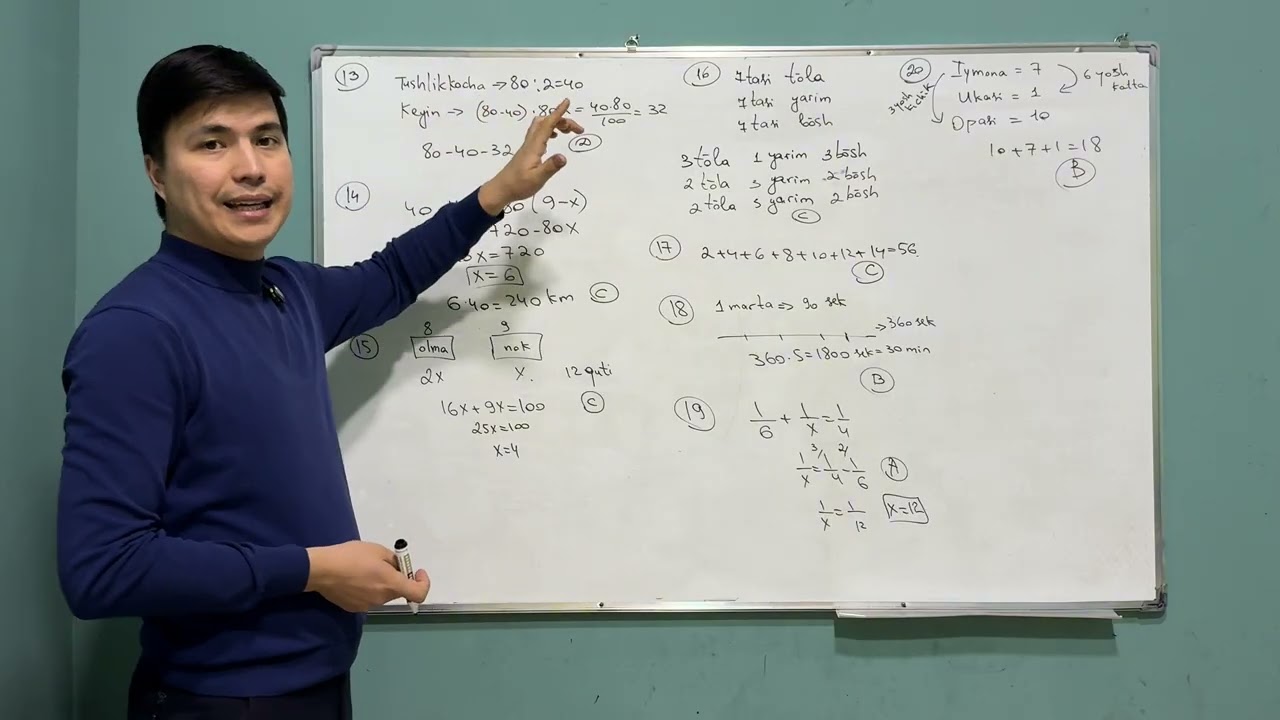 13
Tushlikkacha → 80:2=40
Keyin → (80-40)·80% = 40·80/100 = 32
80-40-32
D
14
40
(9-x)
720-80x
x=720
x=6
6·40=240 km C
15
8 9
olma nok
2x x. 12 quti
16x+9x=100 C
25x=100
x=4
16
7tasi to̅la
7tasi yarim
7tasi bo̅sh
3 to̅la 1 yarim 3 bo̅sh
2 to̅la 3 yarim 2 bo̅sh
2 to̅la 3 yarim 2 bo̅sh
C
17
2+4+6+8+10+12+14=56
C
18
1 marta ⇒ 90 sek
→ 360 sek
360·5=1800 sek=30 min
B
19
1/6 + 1/x = 1/4
1/x = 3/ 1/4 - 2/ 1/6 A
1/x = 1/12 x=12
20
Iymona = 7 6 yosh katta
Ukasi = 1
3 yosh kichik
Opasi = 10
10+7+1=18
B